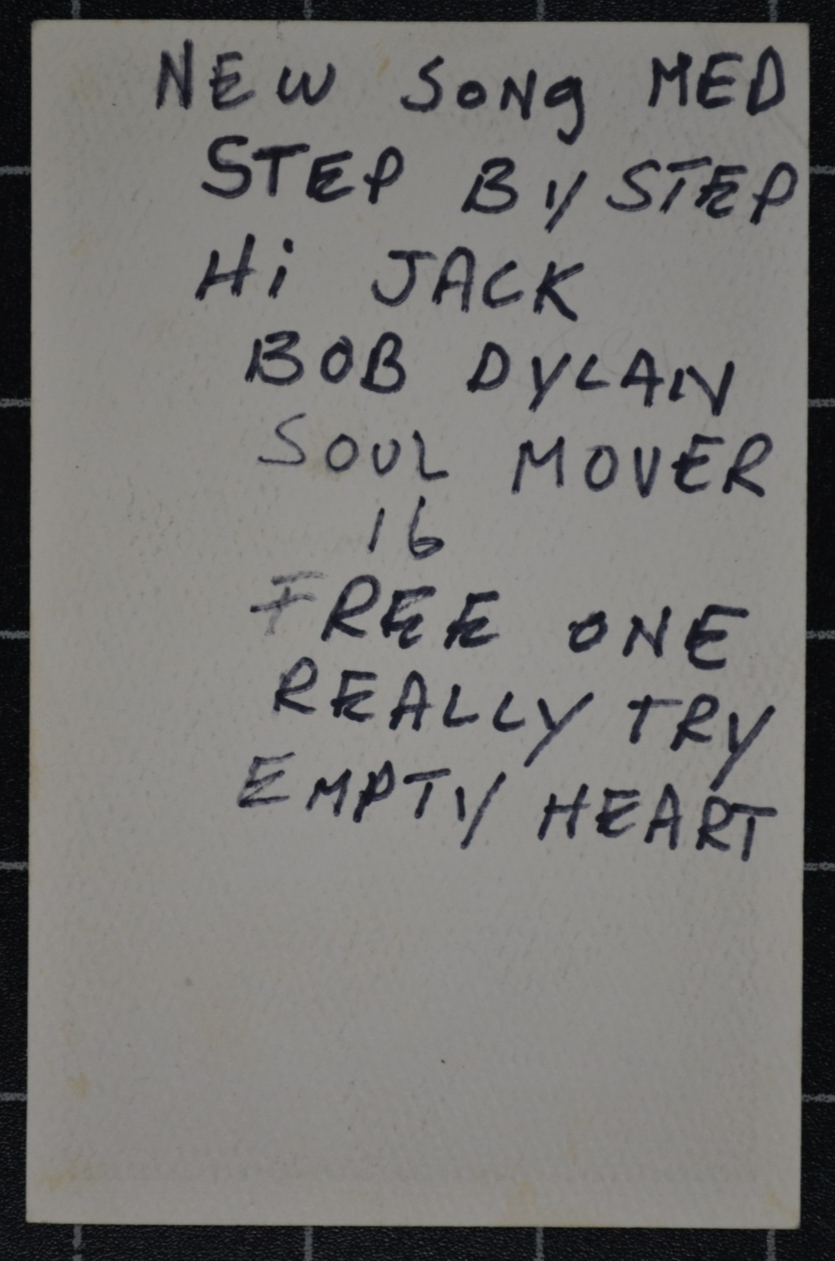 NEW SONg MED
STEP BY STEP
Hi JACK
BOB DYLAN
SOUL MOVER
16
FREE ONE
REALLY TRY
EMPTY HEART